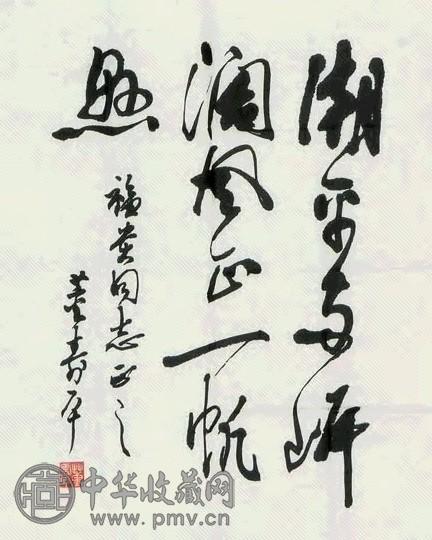 潮平两岸
濶风正一帆
悬
福同志正之
董寿平
中华收藏网
www.pmv.cn